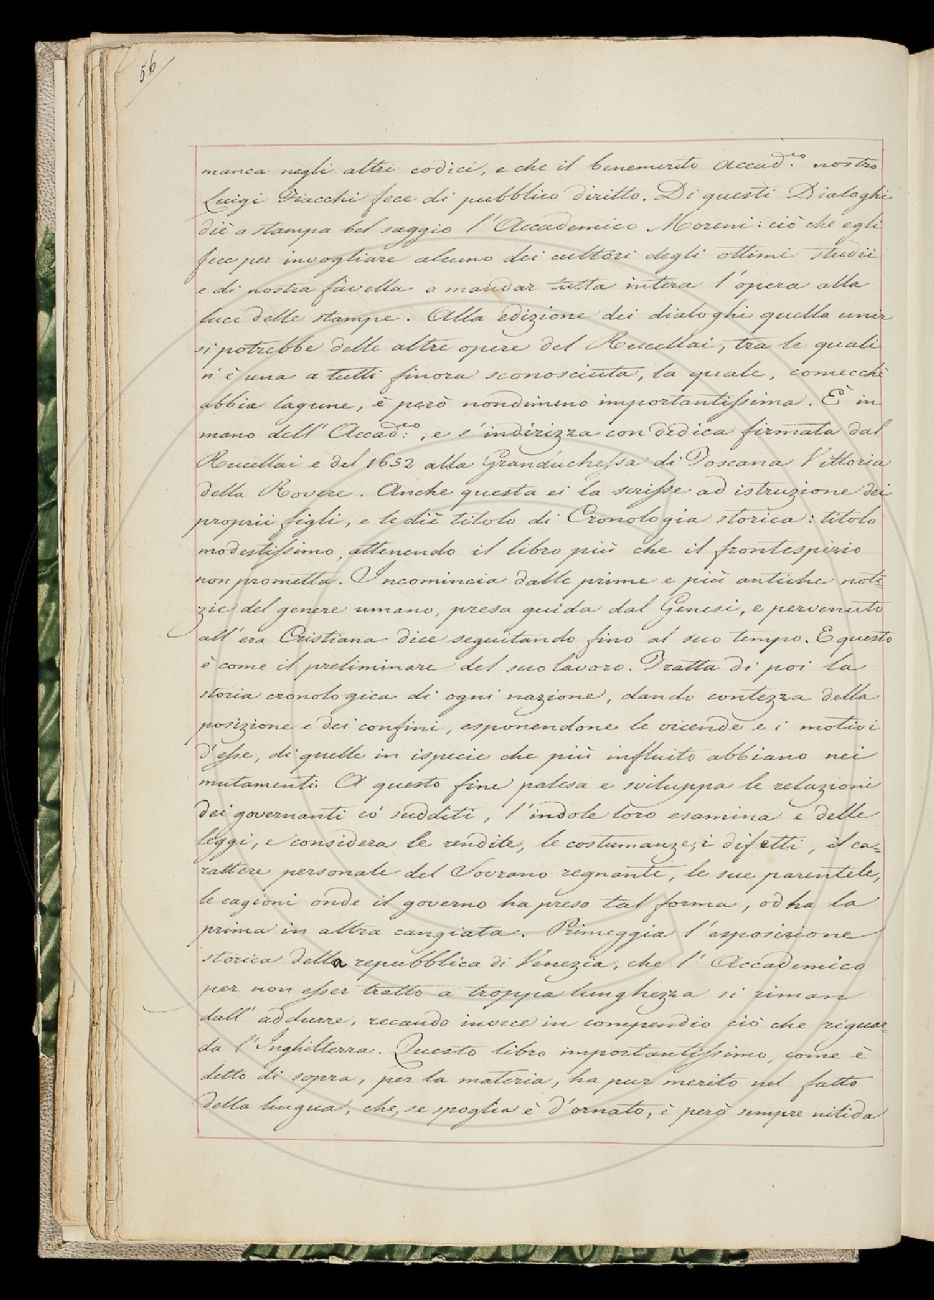 56
manca negli altri codici, e che il benemerito Accad.co nostro
Luigi Fiacchi fece di pubblico diritto. Di questi Dialoghi
diè a stampa bel saggio l'Accademico Moreni: ciò che egli
fece per invogliare alcuno dei cultori degli ottimi studii
e di nostra favella a mandar tutta intera l'opera alla
luce delle stampe. Alla edizione dei dialoghi quella unir
si potrebbe delle altre opere del Rucellai, tra le quali
n'è una a tutti finora sconosciuta, la quale, comecchè
abbia lagune, è però nondimeno importantissima. È in
mano dell'Accad.co, e s'indirizza con dedica firmata dal
Rucellai e del 1652 alla Granduchessa di Toscana Vittoria
della Rovere. Anche questa ei la scrisse ad istruzione dei
proprii figli, e le diè titolo di Cronologia storica: titolo
modestissimo, attenendo il libro più che il frontespizio
non prometta. Incomincia dalle prime e più antiche noti-
zie del genere umano, presa guida dal Genesi, e pervenuto
all'era Cristiana dice seguitando fino al suo tempo. E questo
è come il preliminare del suo lavoro. Tratta di poi la
storia cronologica di ogni nazione, dando contezza della
posizione e dei confini, esponendone le vicende e i motivi
d'esse, di quelle in ispecie che più influito abbiano nei
mutamenti. A questo fine palesa e sviluppa le relazioni
dei governanti co' sudditi, l'indole loro esamina e delle
leggi, e considera le rendite, le costumanze, i difetti, il ca=
rattere personale del Sovrano regnante, le sue parentele,
le cagioni onde il governo ha preso tal forma, od ha la
prima in altra cangiata. Primeggia l'esposizione
storica della repubblica di Venezia, che l'Accademico
per non esser tratto a troppa lunghezza si riman
dall'addurre, recando invece in compendio ciò che riguar=
da l'Inghilterra. Questo libro importantissimo, come è
detto di sopra, per la materia, ha pur merito nel fatto
della lingua, che, se spoglia è d'ornato, è però sempre nitida